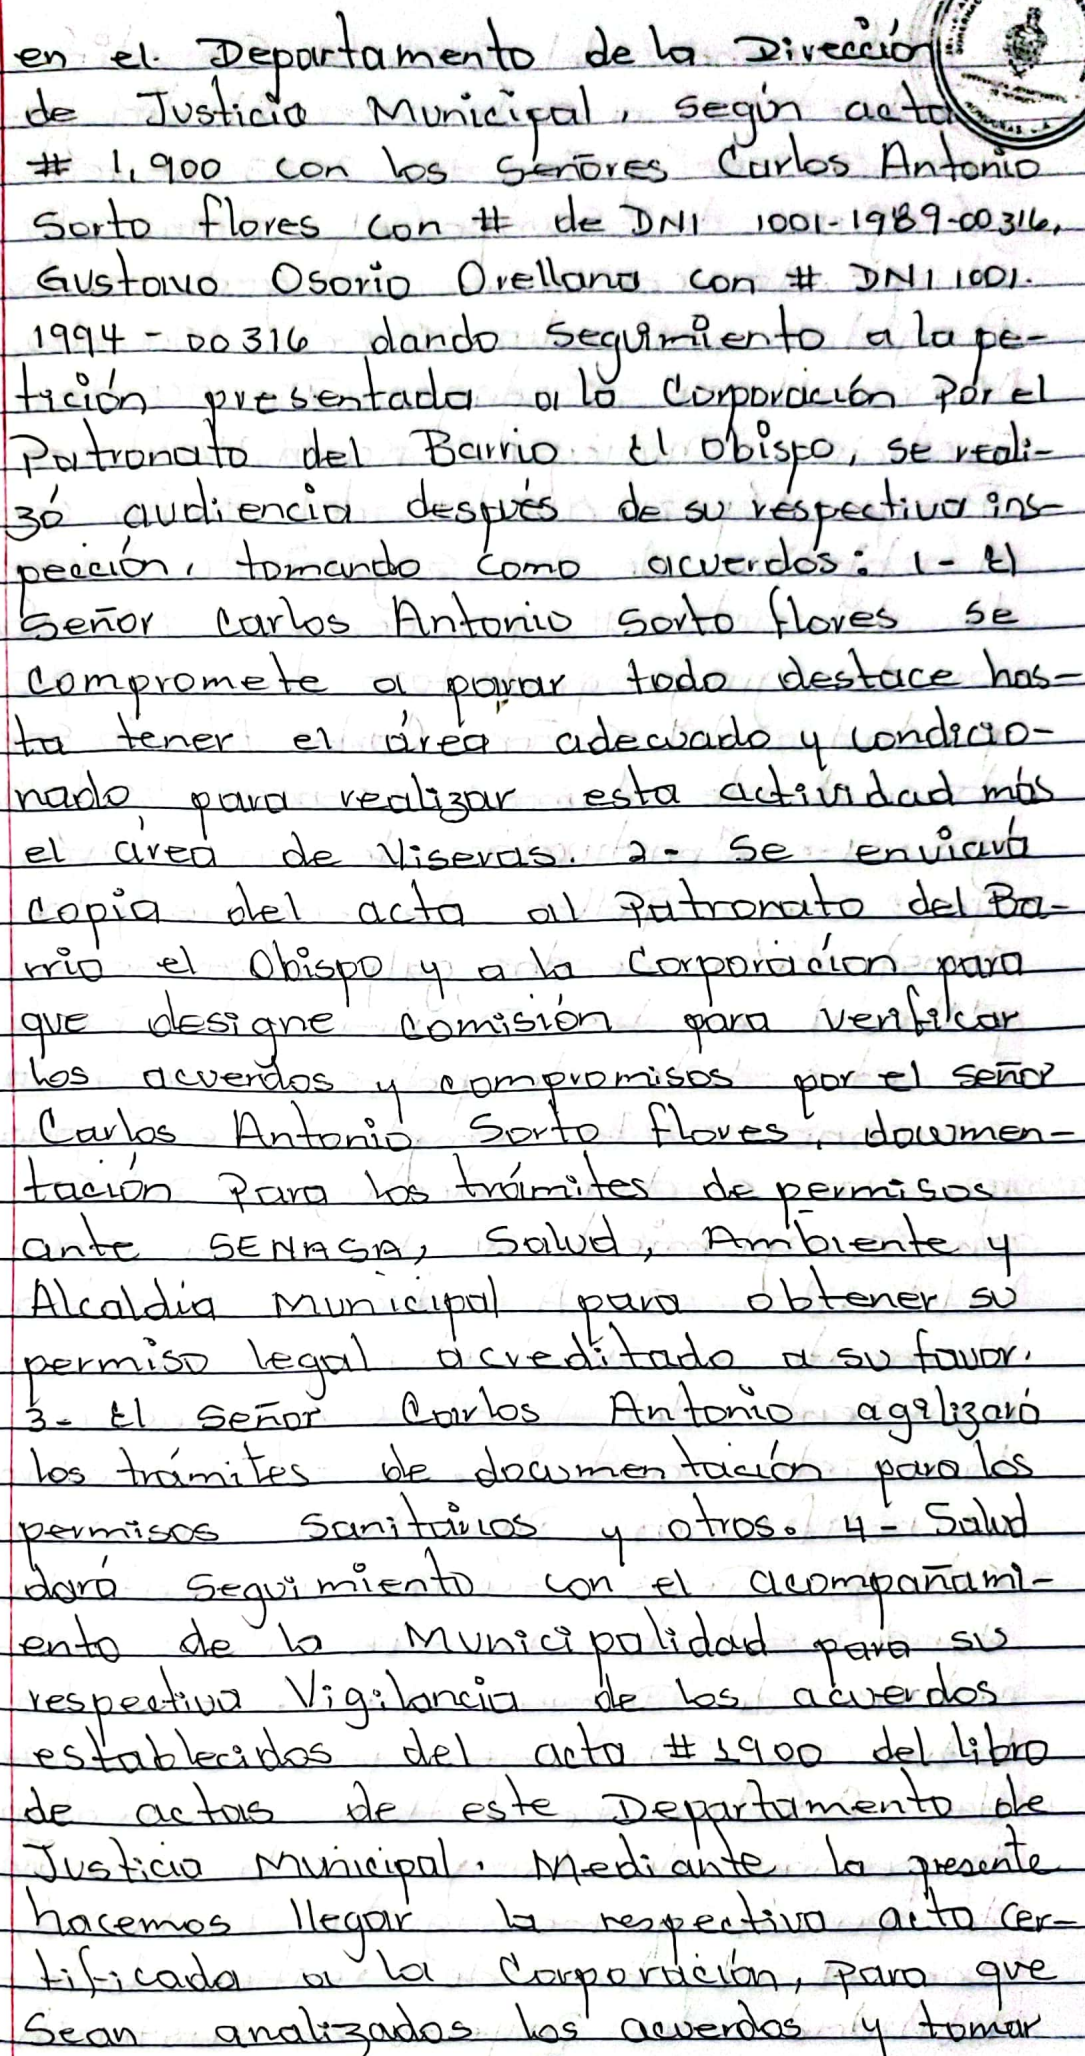 en el. Departamento de la Dirección
de Justicia Municipal, según acta
# 1,900 con los Señores Carlos Antonio
Sorto flores con # de DNI 1001-1989-00316,
Gustavo Osorio Orellana con # DNI 1001.
1994-00316 dando seguimiento a la pe-
tición presentada a la Corporación Por el
Patronato del Barrio El Obispo, se reali-
zó audiencia después de su respectiva ins-
pección, tomando como acuerdos: 1- El
Señor Carlos Antonio Sorto flores se
compromete a parar todo destace has-
ta tener el área adecuado y condicio-
nado para realizar esta actividad más
el área de Viseras. 2- Se enviará
copia del acta al Patronato del Ba-
rrio el Obispo y a la Corporación para
que designe comisión para verificar
los acuerdos y compromisos por el señor
Carlos Antonio Sorto flores, documen-
tación Para los trámites de permisos
ante SENASA, Salud, Ambiente y
Alcaldía Municipal para obtener su
permiso legal acreditado a su favor.
3- El Señor Carlos Antonio agilizará
los trámites de documentación para los
permisos Sanitarios y otros. 4- Salud
dará seguimiento con el acompañami-
ento de la Municipalidad para su
respectiva Vigilancia de los acuerdos
establecidos del acta #1900 del libro
de actas de este Departamento de
Justicia Municipal. Mediante la presente
hacemos llegar la respectiva acta cer-
tificada a la Corporación, Para que
Sean analizados los acuerdos y tomar